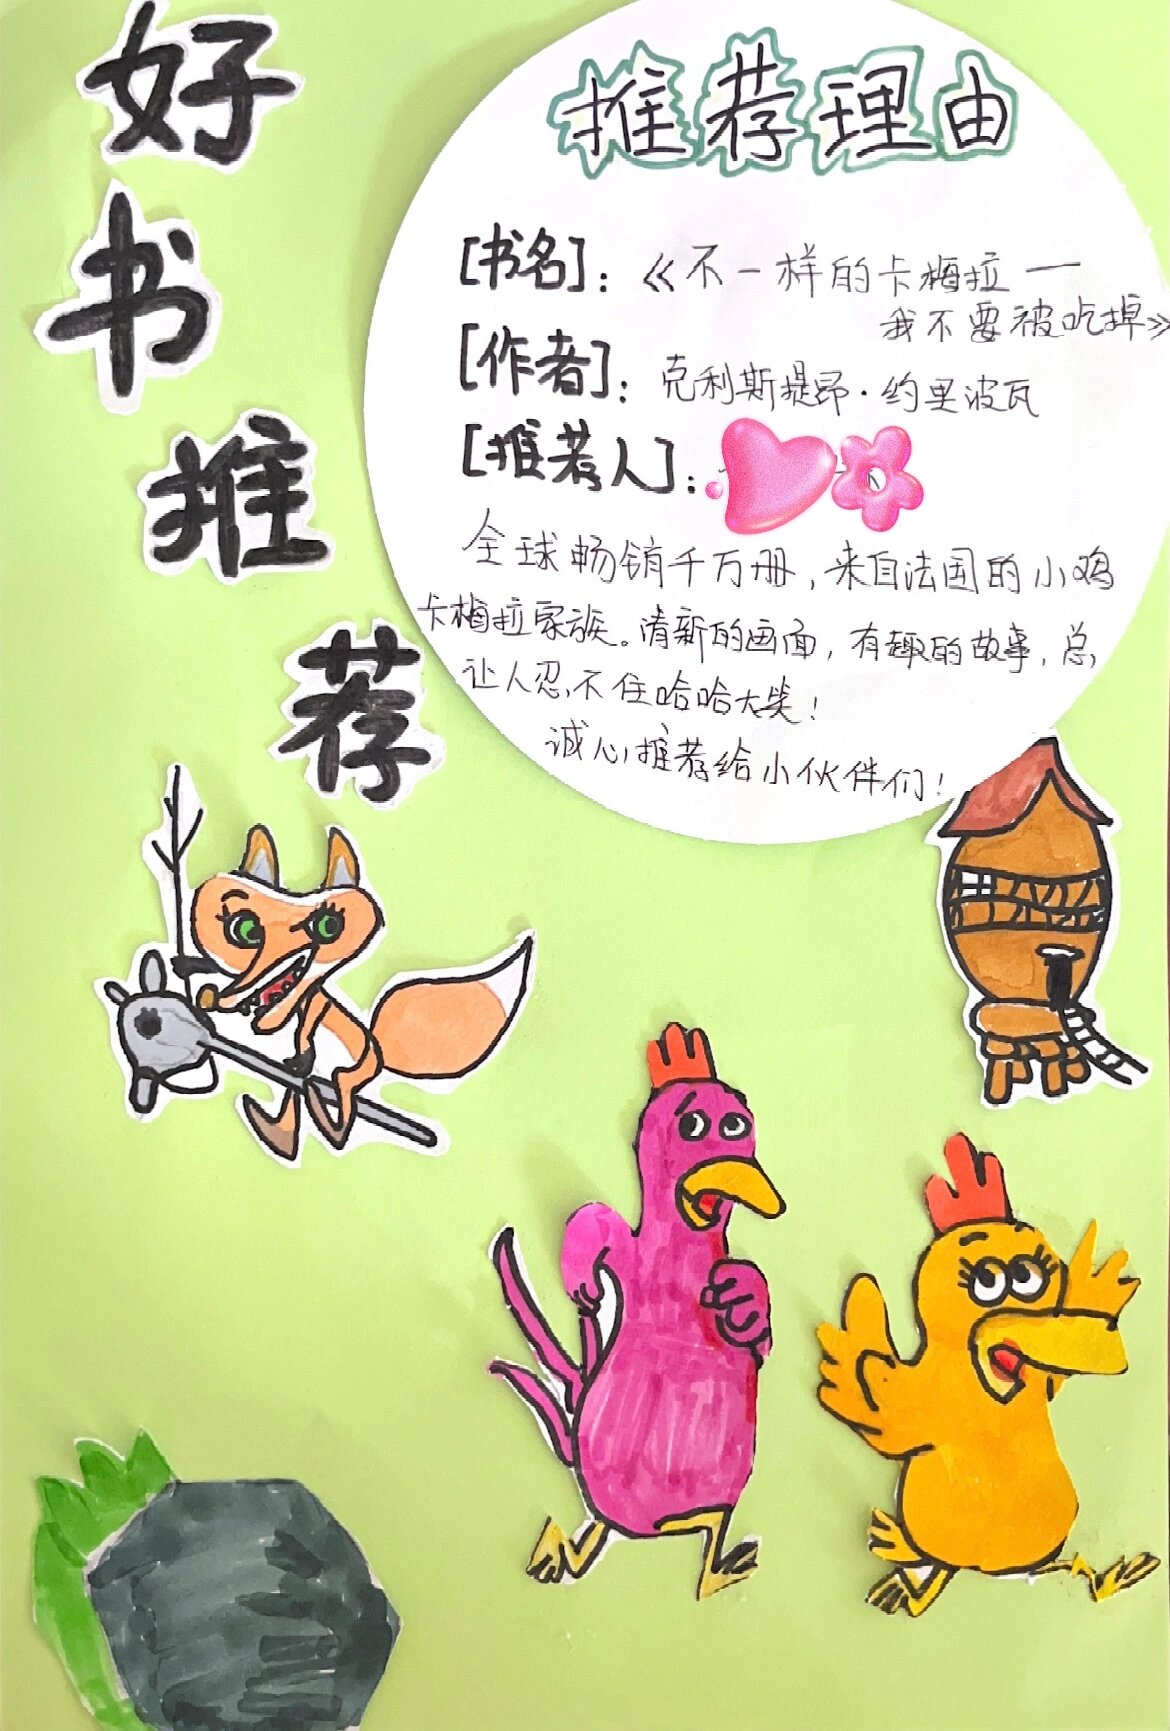 好书推荐
推荐理由
[书名]：《不一样的卡梅拉一
我不要被吃掉》
[作者]：克利斯提昂·约里波瓦
[推荐人]：
全球畅销千万册，来自法国的小鸡
卡梅拉家族。清新的画面，有趣的故事，总
让人忍不住哈哈大笑！
诚心推荐给小伙伴们！